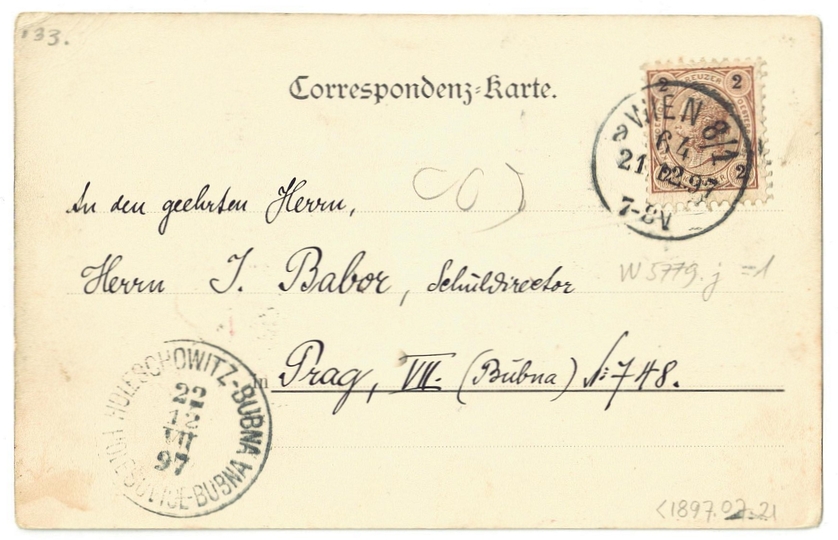 133.
Correspondenz-Karte.
2 KREUZER 2
2
WIEN 8/1
a 64
21.12.97
7-8V
An den geehrten Herrn,
Herrn J. Babor, Schuldirector
W 5779.j =1
in Prag, VII. (Bubna) No 748.
HOLESCHOWITZ-BUBNA
22
12
VII
97
HOLEŠOVICE-BUBNA
<1897.02.21